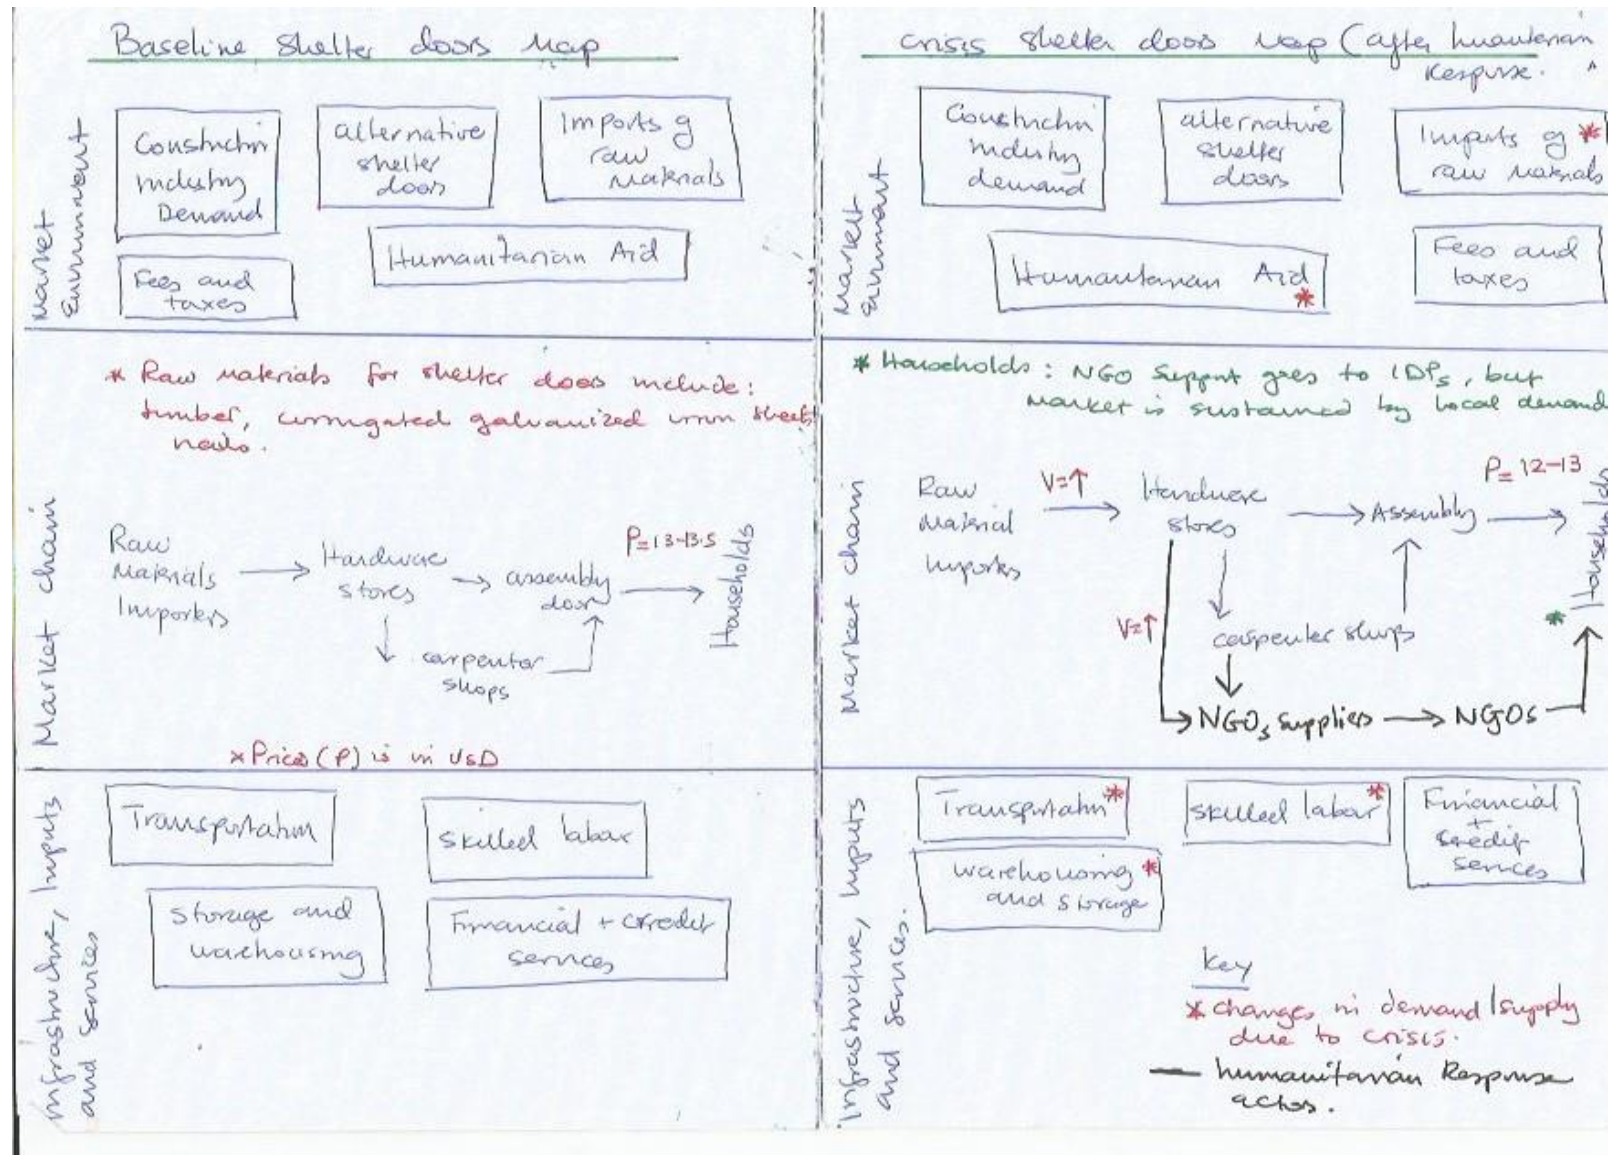 Baseline shelter doors Map
Market
Environment
Construction
industry
Demand
alternative
shelter
doors
Imports of
raw
Materials
Fees and
taxes
Humanitarian Aid
* Raw materials for shelter doors include:
timber, corrugated galvanized iron sheets
nails.
Market chain
Raw
Materials
Importers
Hardware
stores
assembly
door
P=13-13.5
Households
carpenter
shops
* Prices (P) is in USD
Infrastructure, Inputs
and services
Transportation
Skilled labar
Storage and
warehousing
Financial + credit
services
crisis shelter doors Map (after humanitarian
Response.
Market
Environment
Construction
industry
demand
alternative
shelter
doors
Imports of *
raw materials
Humanitarian Aid
*
Fees and
taxes
* Households: NGO Support goes to IDPs, but
market is sustained by local demand
Market chain
Raw
Material
Importers
V=↑
Hardware
stores
Assembly
P=12-13
Households
*
V=↑
carpenter shops
NGOs suppliers
NGOs
Infrastructure, Inputs
and services.
Transportation *
Skilled labar *
Financial
+
credit
services
warehousing *
and storage
Key
* changes in demand/supply
due to crisis.
— humanitarian Response
actos.